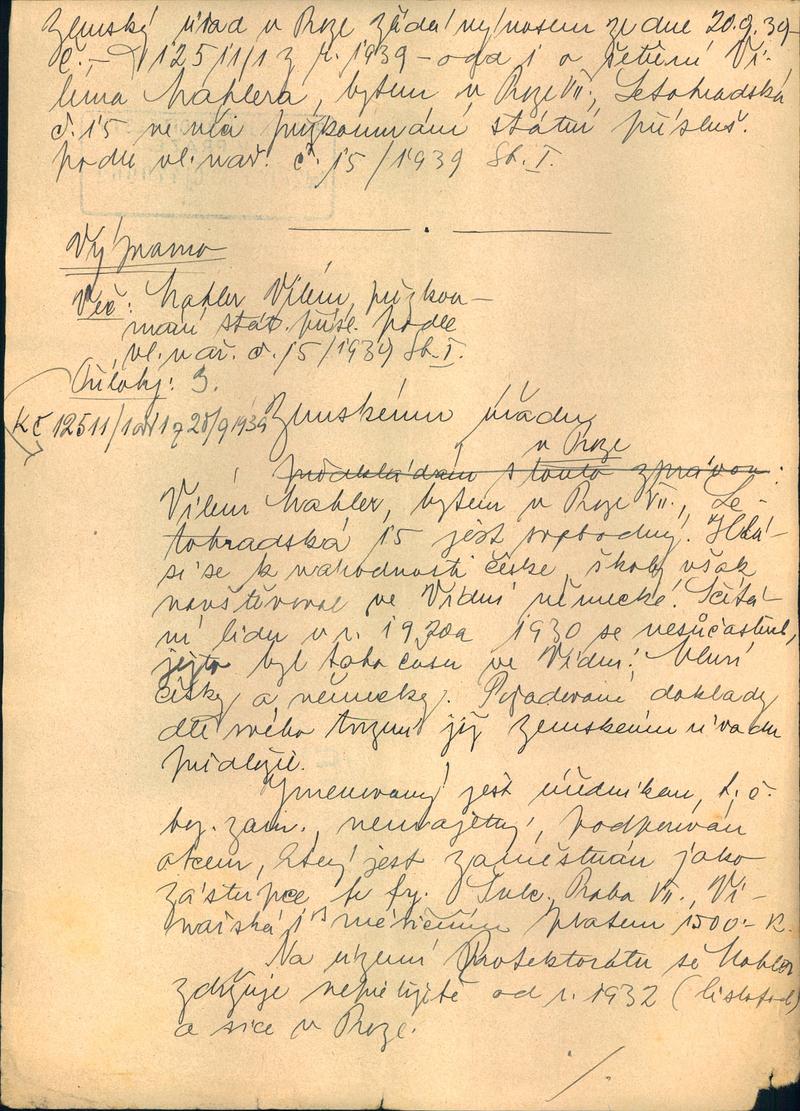 Zemský úřad v Praze žádá výnosem ze dne 20.9.39
č.– 12511/1 z r. 1939 – odd 1 o šetření Vi-
léma Mahlera, bytem v Praze VII., Letohradská
č. 15 ve věci přezkoumání státní přísluš.
podle vl. nař. č. 15/1939 Sb. I.
Výpravno
Věc: Mahler Vilém, přezkou-
mání stát. přísl. podle
vl. nař. č. 15/1939 Sb. I.
Přílohy: 3.
Zemskému úřadu
K č 12511/1 z 20/9 1939
v Praze
předkládám s touto zprávou:
Vilém Mahler, bytem v Praze VII., Le-
tohradská 15 jest svobodný. Hlá-
sí se k národnosti české, školy však
navštěvoval ve Vídni německé. Sčítá-
ní lidu v r. 1920 a 1930 se nesúčastnil,
jejto byl toho času ve Vídni. Mluví
česky a německy. Požadované doklady
dle svého tvrzení již zemskému úřadu
předložil.
Jmenovaný jest úředníkem, t. č.
bez. zam., nemajetný, podporován
otcem, který jest zaměstnán jako
zástupce u fy. Praha VII.,
s měsíčním platem 1500.- K.
Na území Protektorátu se Mahler
zdržuje nepřetržitě od r. 1932 (listopad)
a sice v Praze.
./.